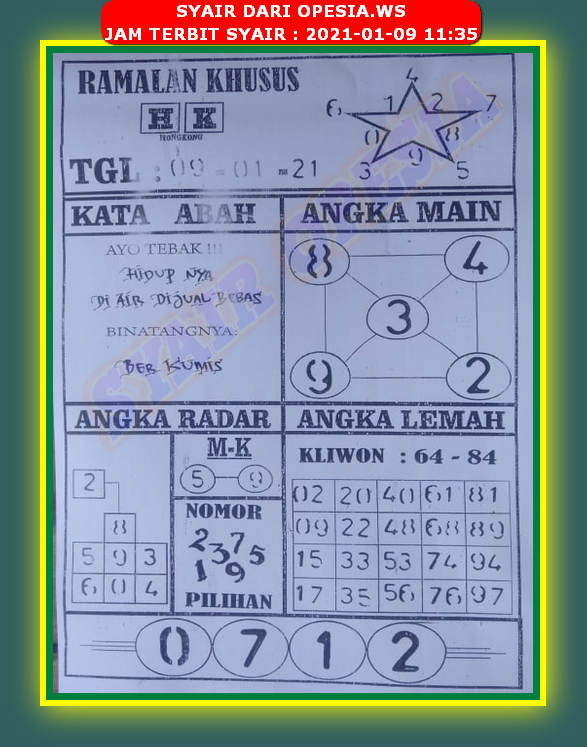 SYAIR DARI OPESIA.WS
JAM TERBIT SYAIR : 2021-01-09 11:35
RAMALAN KHUSUS
H K
HONGKONG
TGL : 09 - 01 - 21
4
6 1 2 7
0 8
9
3 5
KATA ABAH
AYO TEBAK !!!
HIDUP NYA
DI AIR DIJUAL BEBAS
BINATANGNYA:
BER KUMIS
ANGKA MAIN
8 4
3
9 2
ANGKA RADAR
2
8
5 9 3
6 0 4
M-K
5 9
NOMOR
2 3 7 5
1 9
PILIHAN
ANGKA LEMAH
KLIWON : 64 - 84
02 20 40 61 81
09 22 48 68 89
15 33 53 74 94
17 35 56 76 97
0 7 1 2
SYAIR OPESIA